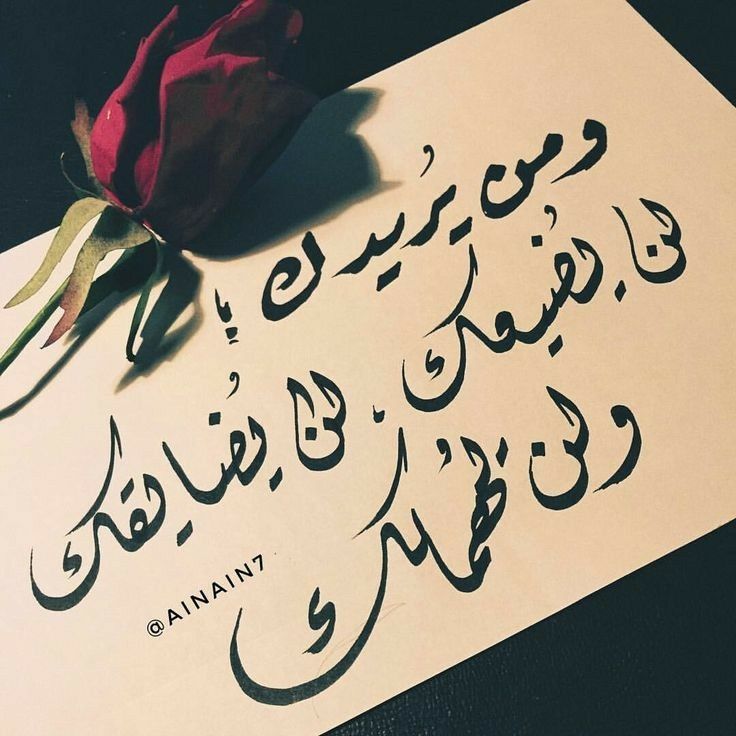 ومن يُريدك !
لن يُضيعك ، لن يُضايقك
ولن يُهملك
@AINAIN7